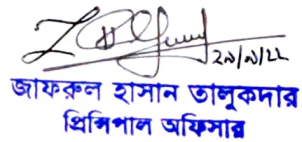 জাফরুল হাসান তালুকদার
প্রিন্সিপাল অফিসার